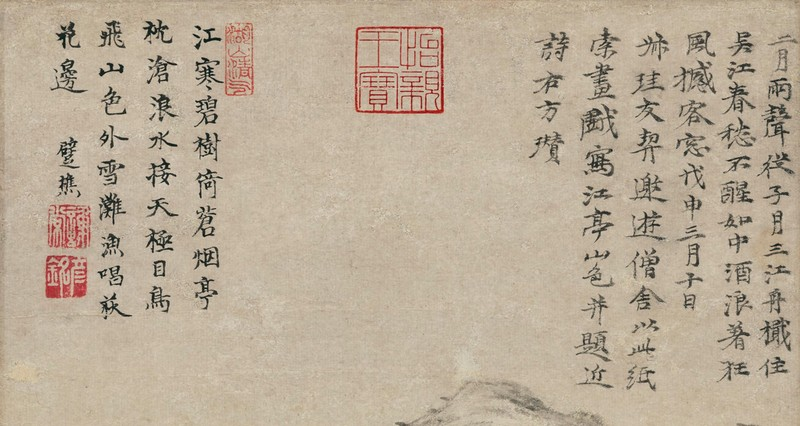 二月雨聲從子月三江舟檥住
吳江春愁不醒如中酒浪著狂
風撼客窓戊申三月子日
珪友契邀遊僧舍以此紙
索畫戲寫江亭山色并題近
詩右方瓚
怡親
王寶
江寒碧樹倚蒼烟亭
枕滄浪水接天極目鳥
飛山色外雪灘漁唱荻
花邊
躄樵